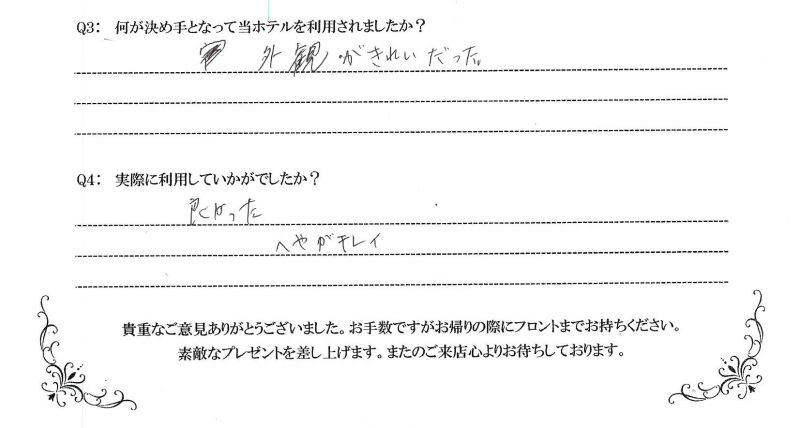 Q3: 何が決め手となって当ホテルを利用されましたか?
外観がきれいだった。
Q4: 実際に利用していかがでしたか?
良かった
へやがキレイ
貴重なご意見ありがとうございました。お手数ですがお帰りの際にフロントまでお持ちください。
素敵なプレゼントを差し上げます。またのご来店心よりお待ちしております。